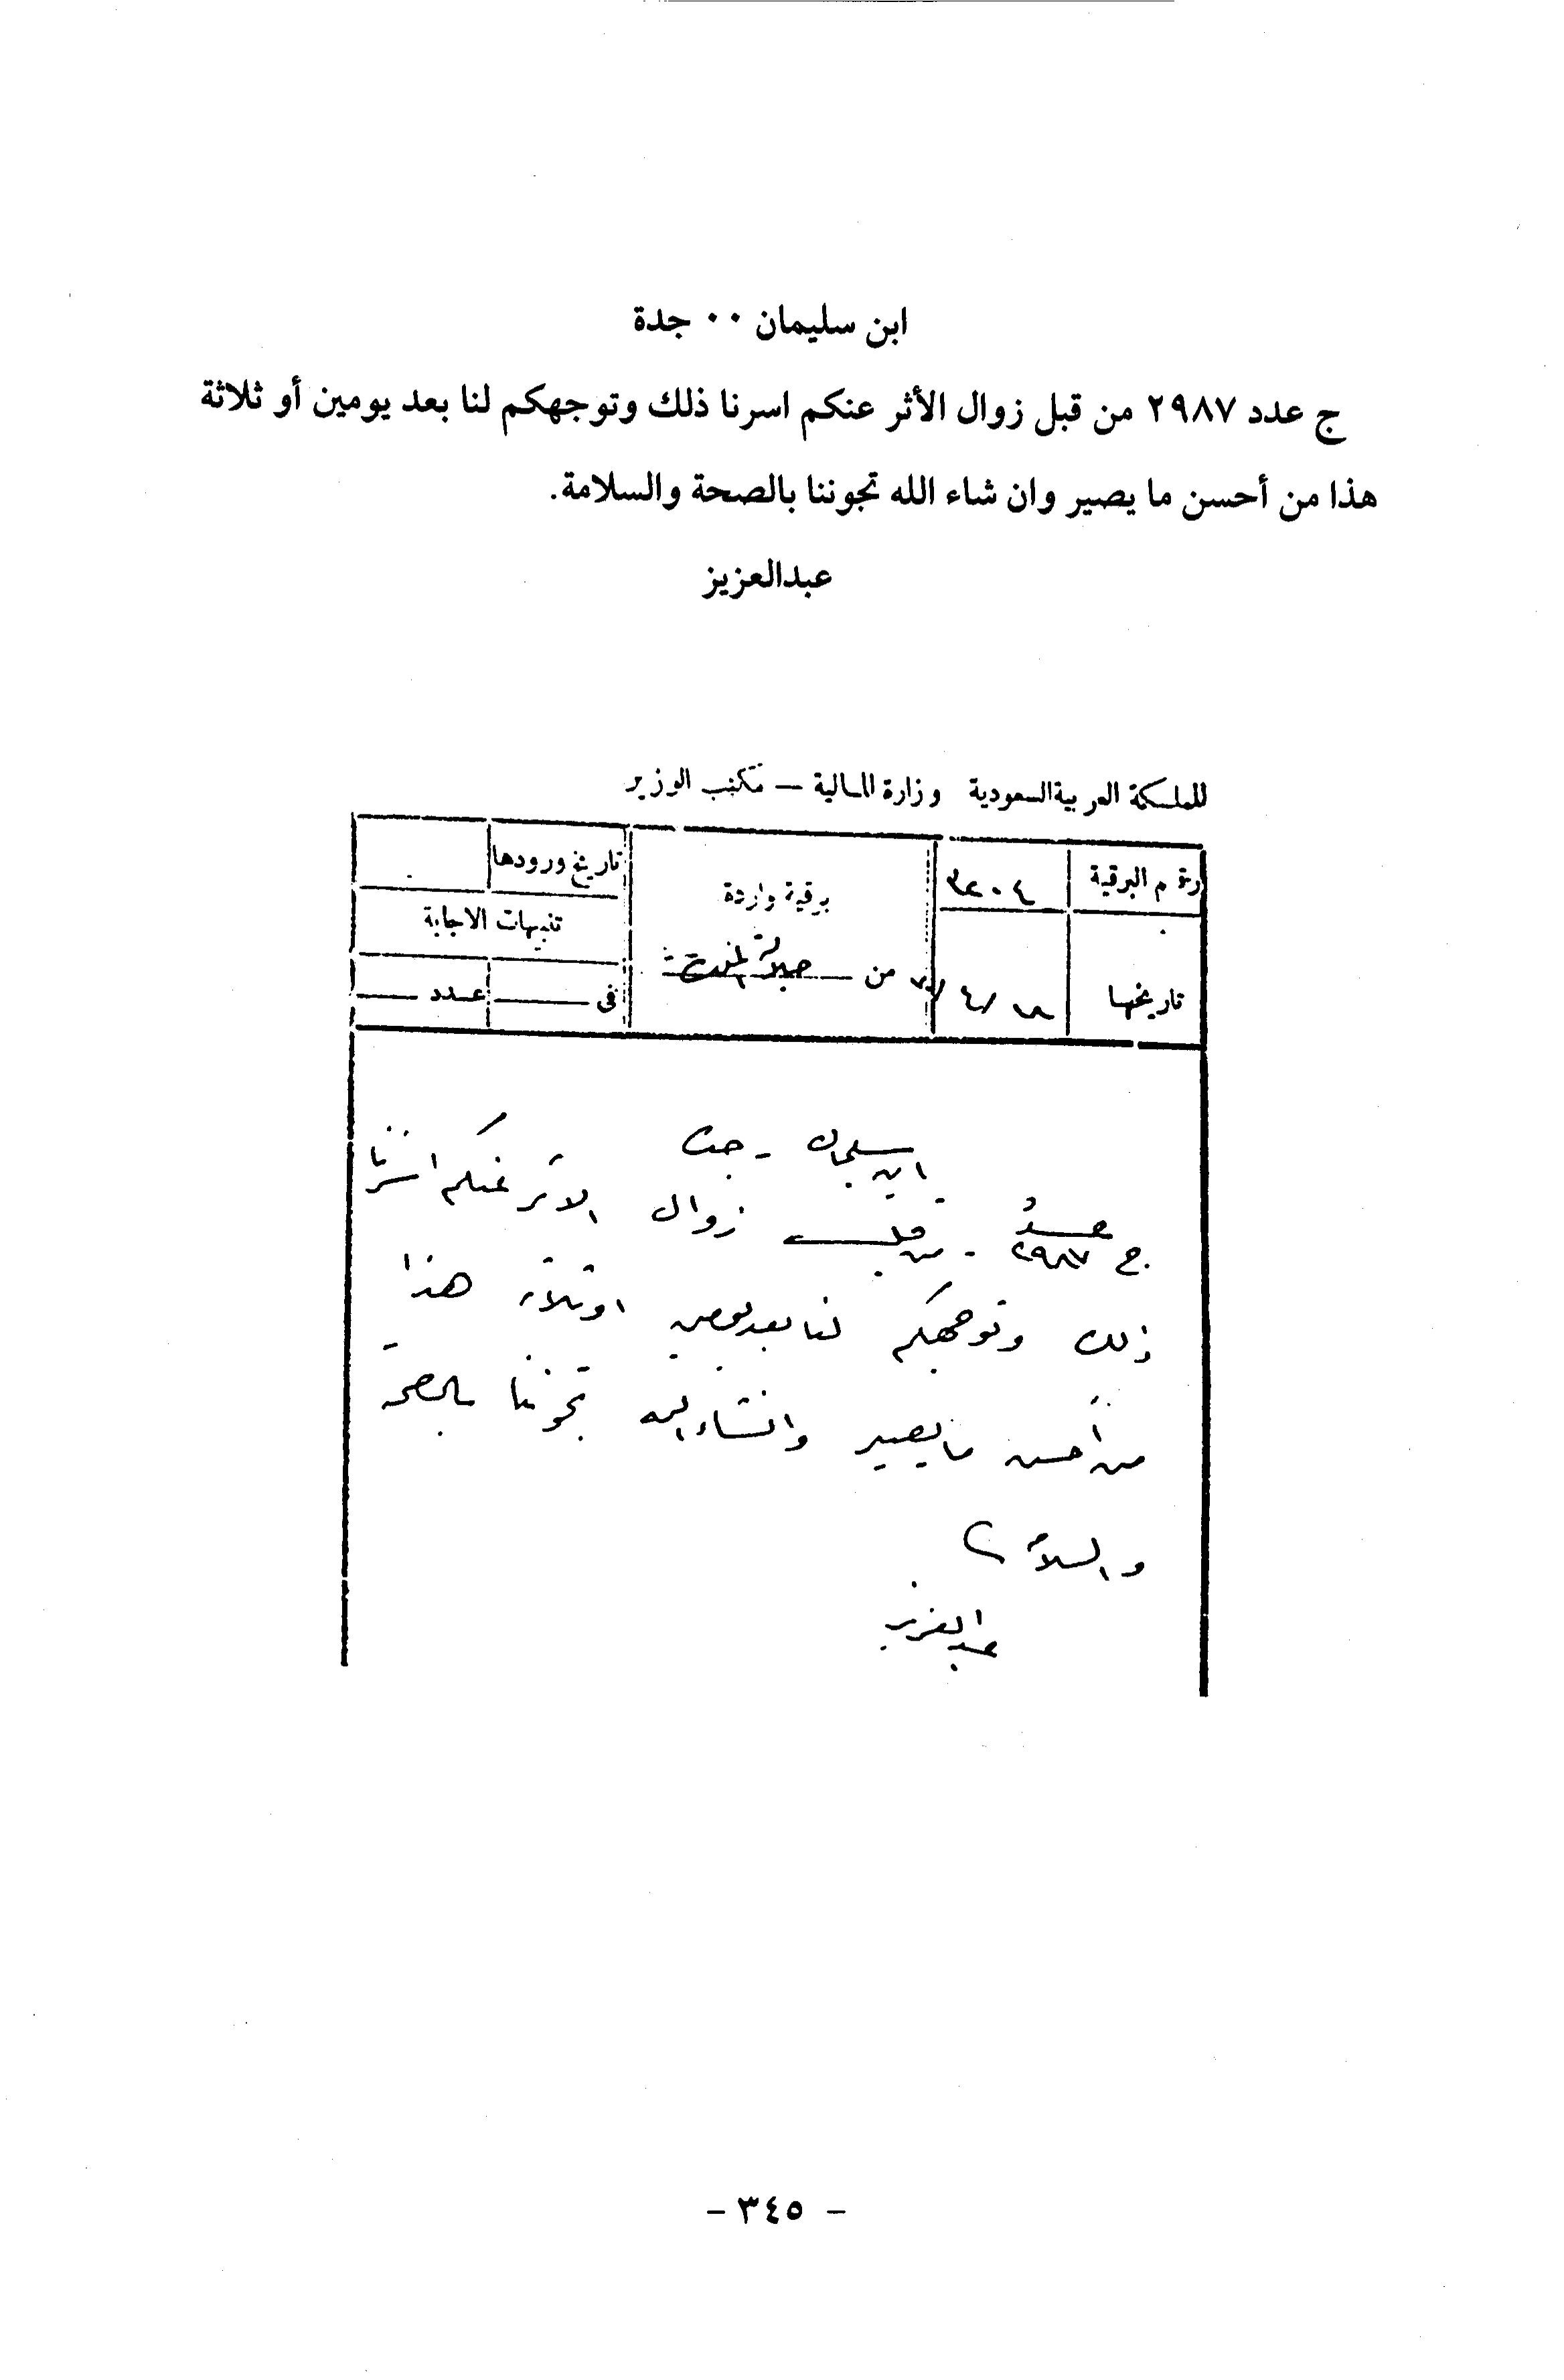 ابن سليمان ٠٠ جدة
ج عدد ٢٩٨٧ من قبل زوال الأثر عنكم اسرنا ذلك وتوجهكم لنا بعد يومين أو ثلاثة
هذا من أحسن ما يصير وان شاء الله تجوننا بالصحة والسلامة.
عبدالعزيز
المملكة العربية السعودية وزارة المالية — مكتب الوزير
رقم البرقية ٣٢٠٤ برقية واردة تاريخ ورودها
تنبيهات الاجابة
تاريخها ١٨/٤/ من جلالة في عدد
ابن سليمان - جدة
ج عدد ٢٩٨٧ - من قبل زوال الاثر عنكم اسرنا
ذلك وتوجهكم لنا بعد يومين او ثلاثة هذا
من أحسن ما يصير وانشاء الله تجوننا بالصحة
والسلامة
عبد العزيز
- ٣٤٥ -